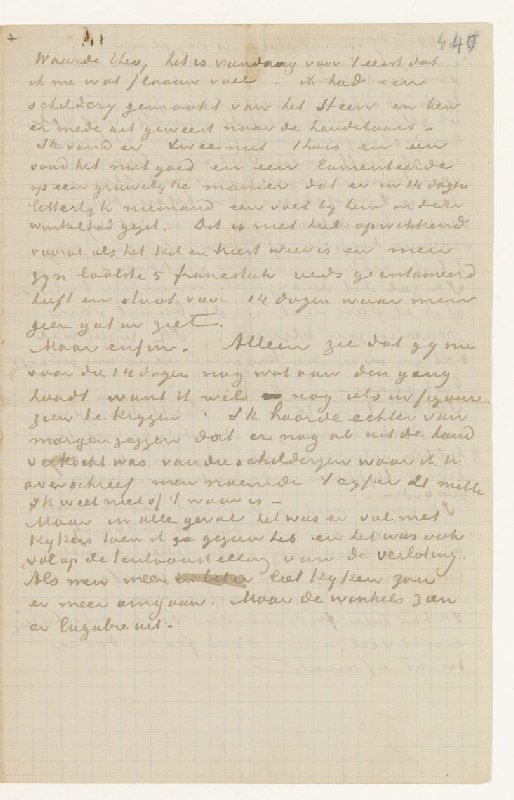 440
Waarde Theo, het is vandaag voor 't eerst dat
ik me wat flaauw voel – ik had een
schildery gemaakt van het Steen en ben
er mede uit geweest naar de handelaars –
Ik vond er twee niet t'huis en een
vond het niet goed en een lamenteerde
op een gruwelyke manier dat er in 14 dagen
letterlyk niemand een voet by hem in den
winkel had gezet. Dat is niet heel opwekkend
vooral als het kil en triest weer is en men
zyn laatste 5 francstuk reeds geentameerd
heeft en staat voor 14 dagen waar men
geen gat in ziet.
Maar enfin. Alleen zie dat gy me
voor die 14 dagen nog wat aan den gang
houdt want ik wil nog iets in figuur
zien te krygen. Ik hoorde echter van
morgen zeggen dat er nog al uit de hand
verkocht was van die schilderyen waar ik U
over schreef men noemde 't cyfer 21 mille
Ik weet niet of 't waar is –
Maar in alle geval het was er vol met
kykers toen ik ze gezien heb en het was ook
vol op de tentoonstellen van de verloting.
Als men meer liet kyken zou
er meer omgaan. Maar de winkels zien
er lugubre uit.